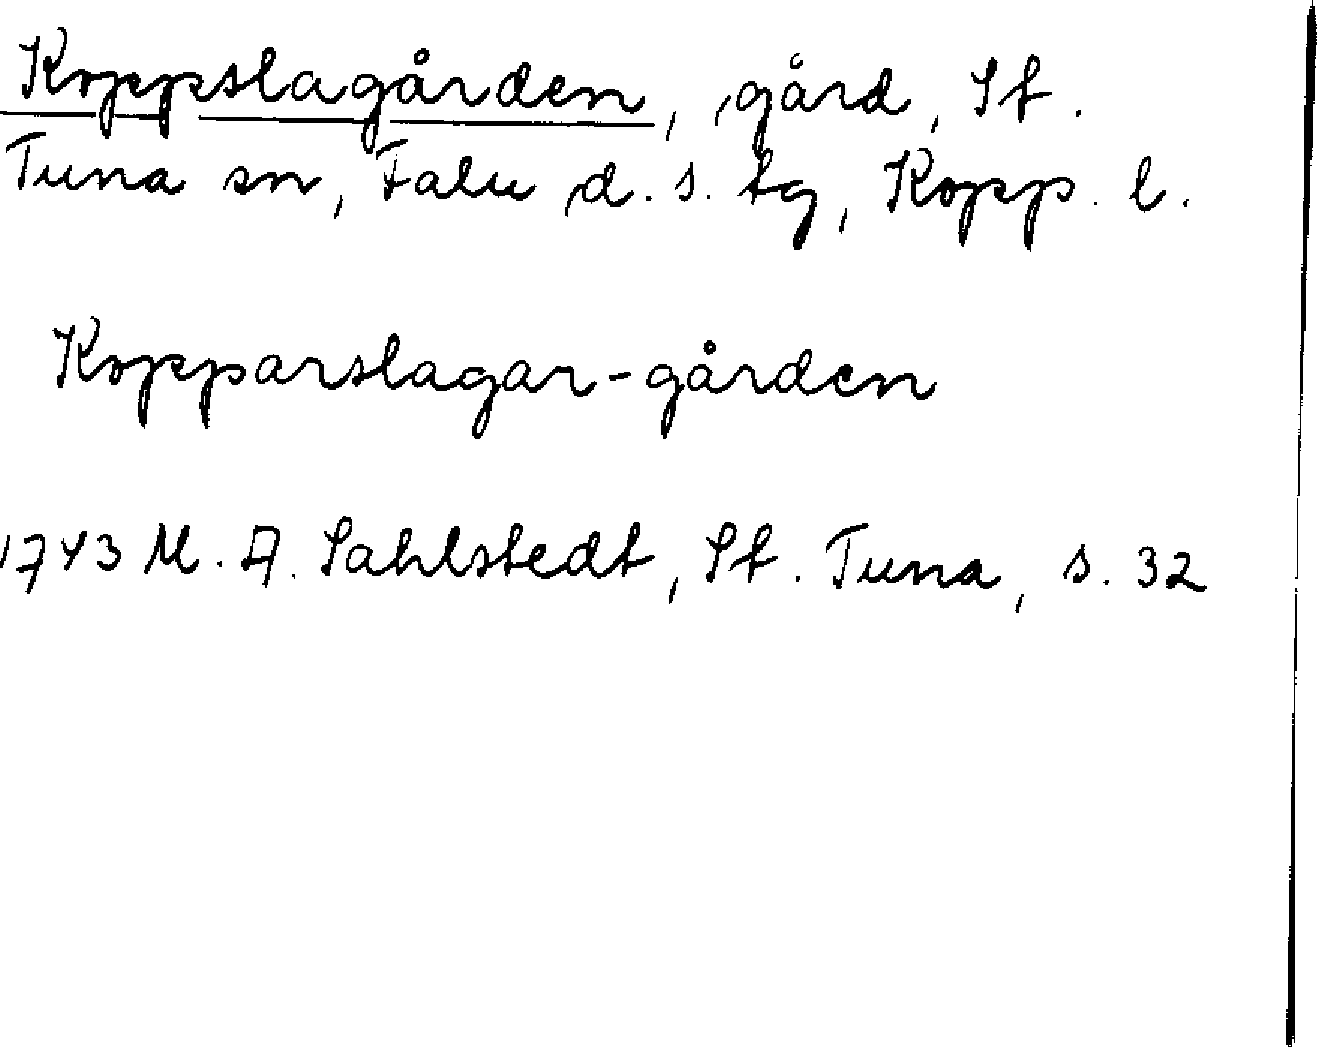 Koppslagården, gård, St.
Tuna sn, Falu d. s. tg, Kopp. l.
Kopparslagar-gården
1743 M. A. Sahlstedt, St. Tuna, s. 32